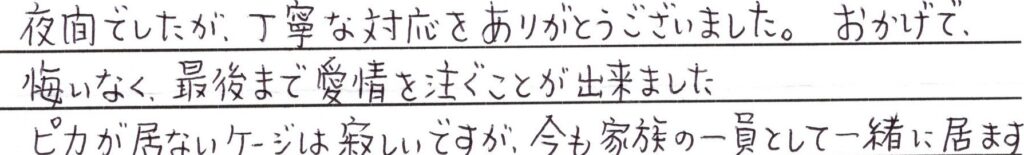 夜間でしたが、丁寧な対応をありがとうございました。 おかげで、
悔いなく、最後まで愛情を注ぐことが出来ました
ピカが居ないケージは寂しいですが、今も家族の一員として一緒に居ます